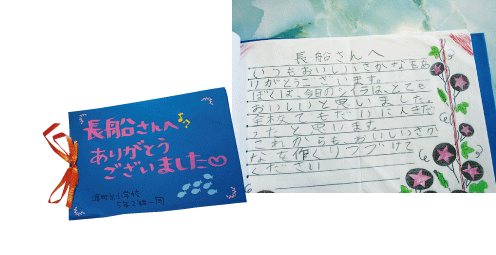 長船さんへ
ありがとう
ございました
5年2組一同
長船さんへ
いつもおいしいさかなをあ
りがとうございます。
ぼくは、今日のシイラは、とても
おいしいと思いました。
と思います。
これからもおいしいさか
なを作りつづけて
ください